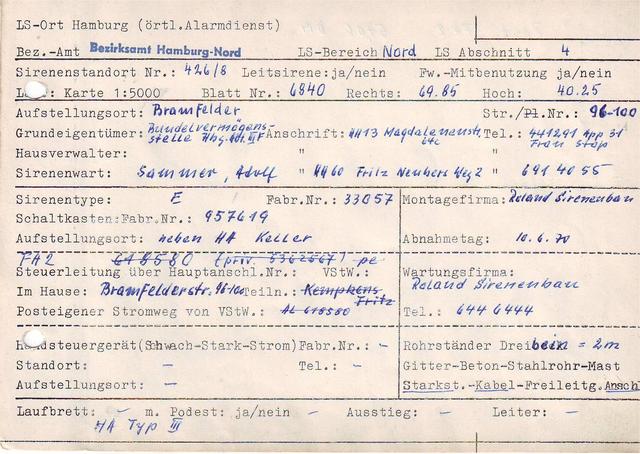 LS-Ort Hamburg (örtl.Alarmdienst)
Bez.-Amt Bezirksamt Hamburg-Nord LS-Bereich Nord LS Abschnitt 4
Sirenenstandort Nr.: 426/8 Leitsirene: ja/nein Fw.-Mitbenutzung ja/nein
Karte 1:5000 Blatt Nr.: 6840 Rechts: 69.85 Hoch: 40.25
Aufstellungsort: Bramfelder Str./Pl.Nr.: 96-100
Grundeigentümer: Bundesvermögens-stelle Hbg. Anschrift: HH13 Magdalenenstr. 64c Tel.: 441291 App 31
Hausverwalter: " "
Sirenenwart: Sammer, Adolf " HH60 Fritz Neubers Weg 2 " 691 40 55
Sirenentype: E Fabr.Nr.: 33057 Montagefirma: Roland Sirenenbau
Schaltkasten: Fabr.Nr.: 957619
Aufstellungsort: neben HA Keller Abnahmetag: 10.6.70
FA2 618580 (priv. 5362567) pe
Steuerleitung über Hauptanschl.Nr.: VStW.: Wartungsfirma:
Im Hause: Bramfelderstr. 96-100 Teiln.: Kempkens Fritz Roland Sirenenbau
Posteigener Stromweg von VStW.: AL 618580 Tel.: 644 6444
Handsteuergerät(Schwach-Stark-Strom) Fabr.Nr.: - Rohrständer Dreibein = 2m
Standort: - Tel.: - Gitter-Beton-Stahlrohr-Mast
Aufstellungsort: - Starkst.-Kabel-Freileitg.Anschl
Laufbrett: - m. Podest: ja/nein - Ausstieg: - Leiter: -
HA Typ III